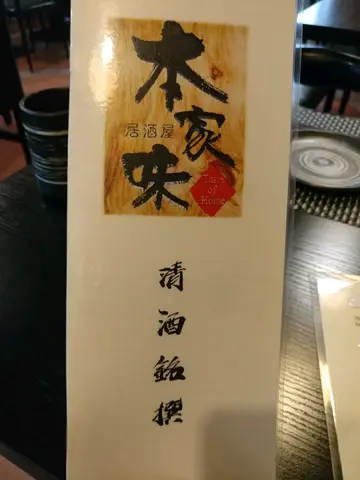 本家味
居酒屋
Taste
of
Home
清酒銘撰